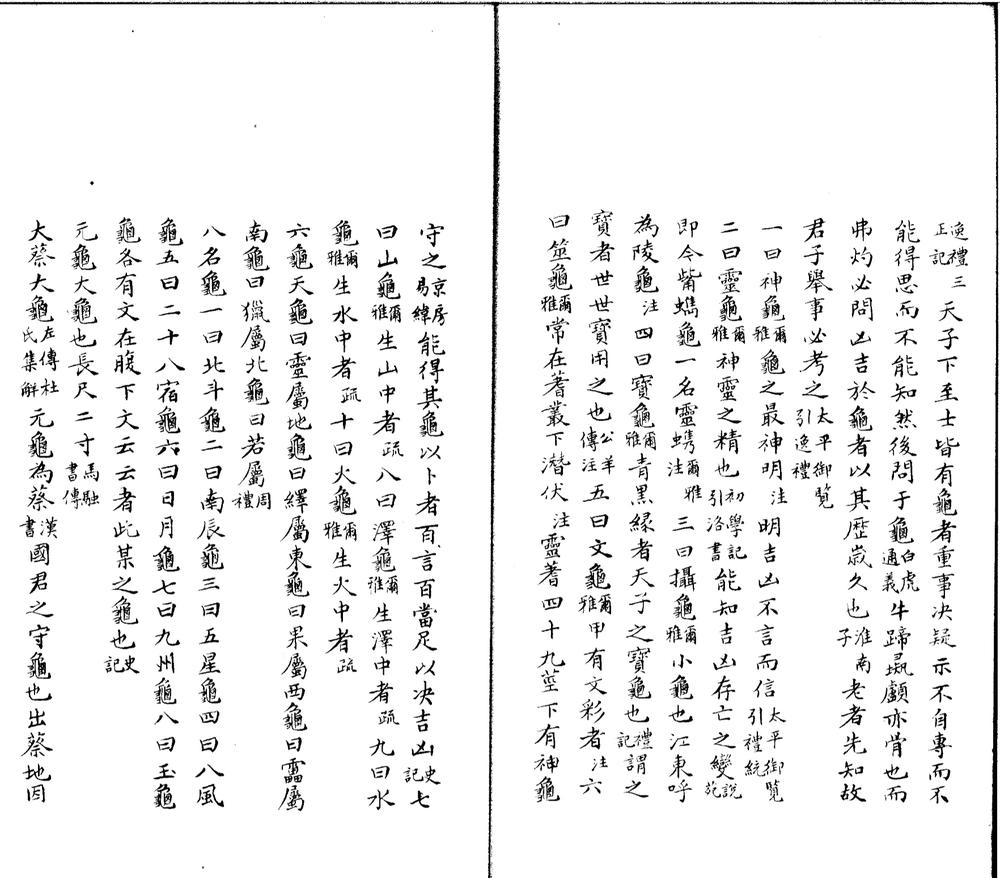 逸禮三正記天子下至士皆有龜者重事决疑示不自專而不
能得思而不能知然後問于龜白虎通義牛蹄彘顱亦骨也而
弗灼必問凶吉於龜者以其歷歲久也淮南子老者先知故
君子舉事必考之太平御覽引逸禮
一曰神龜爾雅龜之最神明注明吉凶不言而信太平御覽引禮統
二曰靈龜爾雅神靈之精也初學記引洛書能知吉凶存亡之變說苑
即今觜蠵龜一名靈蠵爾雅注三曰攝龜爾雅小龜也江東呼
為陵龜注四曰寶龜爾雅青黑緣者天子之寶龜也禮記謂之
寶者世世寶用之也公羊傳注五曰文龜爾雅甲有文彩者注六
曰筮龜爾雅常在蓍叢下潛伏注靈蓍四十九莖下有神龜
守之京房易緯能得其龜以卜者百言百當足以决吉凶史記七
曰山龜爾雅生山中者疏八曰澤龜爾雅生澤中者疏九曰水
龜爾雅生水中者疏十曰火龜爾雅生火中者疏
六龜天龜曰靈屬地龜曰繹屬東龜曰果屬西龜曰靁屬
南龜曰獵屬北龜曰若屬周禮
八名龜一曰北斗龜二曰南辰龜三曰五星龜四曰八風
龜五曰二十八宿龜六曰日月龜七曰九州龜八曰玉龜
龜各有文在腹下文云云者此某之龜也史記
元龜大龜也長尺二寸馬融書傳
大蔡大龜左傳杜氏集解元龜為蔡漢書國君之守龜也出蔡地因